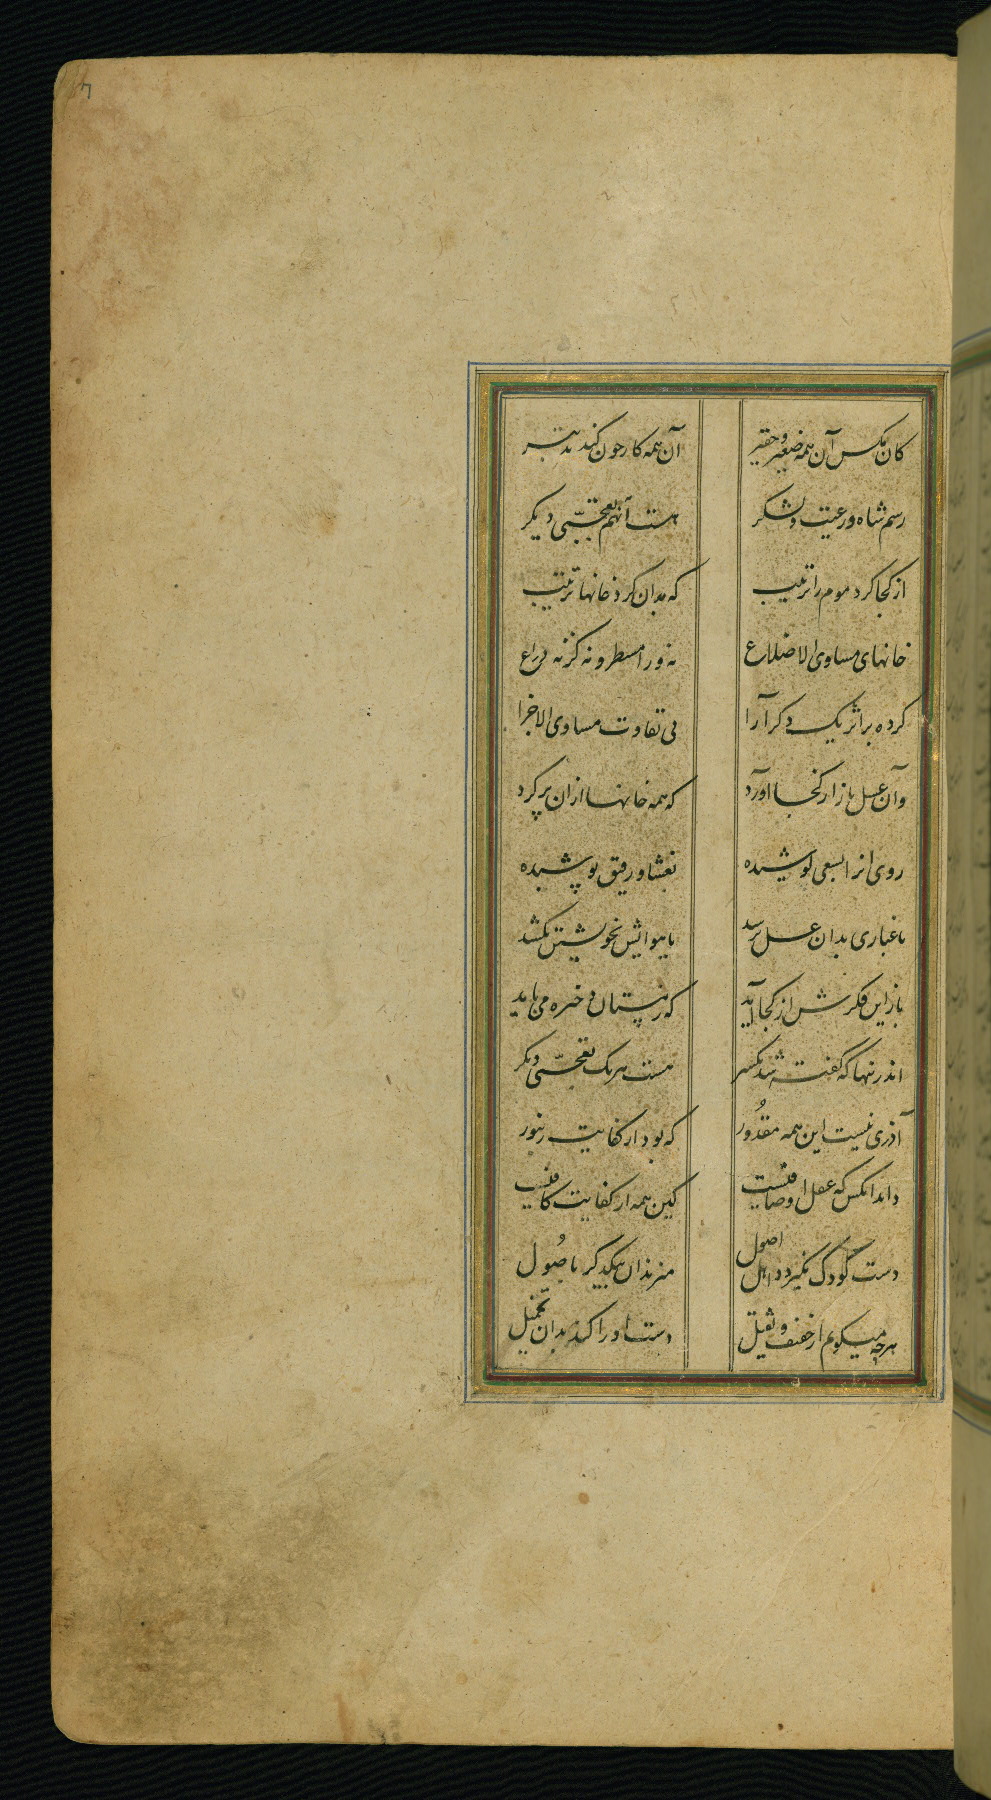 کان مکس آن همه ضغیر و حقیر آن همه کار چون کند تدبیر
رسم شاه و رعیت و لشکر هست آنهم تعجبّی دیکر
از کجا کرد موم را ترتیب که بدان کرد خانها ترتیب
خانهای مساوی الاضلاع نه ورا مسطر و نه کز نه ذراع
کرده بر اثر یک دکر آرا بی تفاوت مساوی الاجزا
وآن عسل باز از کجا آورد که همه خانها از ان پر کرد
روی انرا بسعی کوشیده بغشاء رقیق پوشیده
تا غباری بدان عسل نرسد یا هواش بخویشتن نکشد
باز این فکرش از کجا آید که زمستان ذخیره می باید
اندرینها که کفته شد یکسر هست هر یک تعجبّی دیکر
آدمی نیست این همه مقدُور که بود از کفایت زنبور
داند انکس که عقل او صافیست کین همه از کفایت کافیست
دست کودک بکیرد اهل اصول میزند آن بیکدیکر باصُول
هرچه میکویم از خفیف و ثقیل دست او را کند بدان